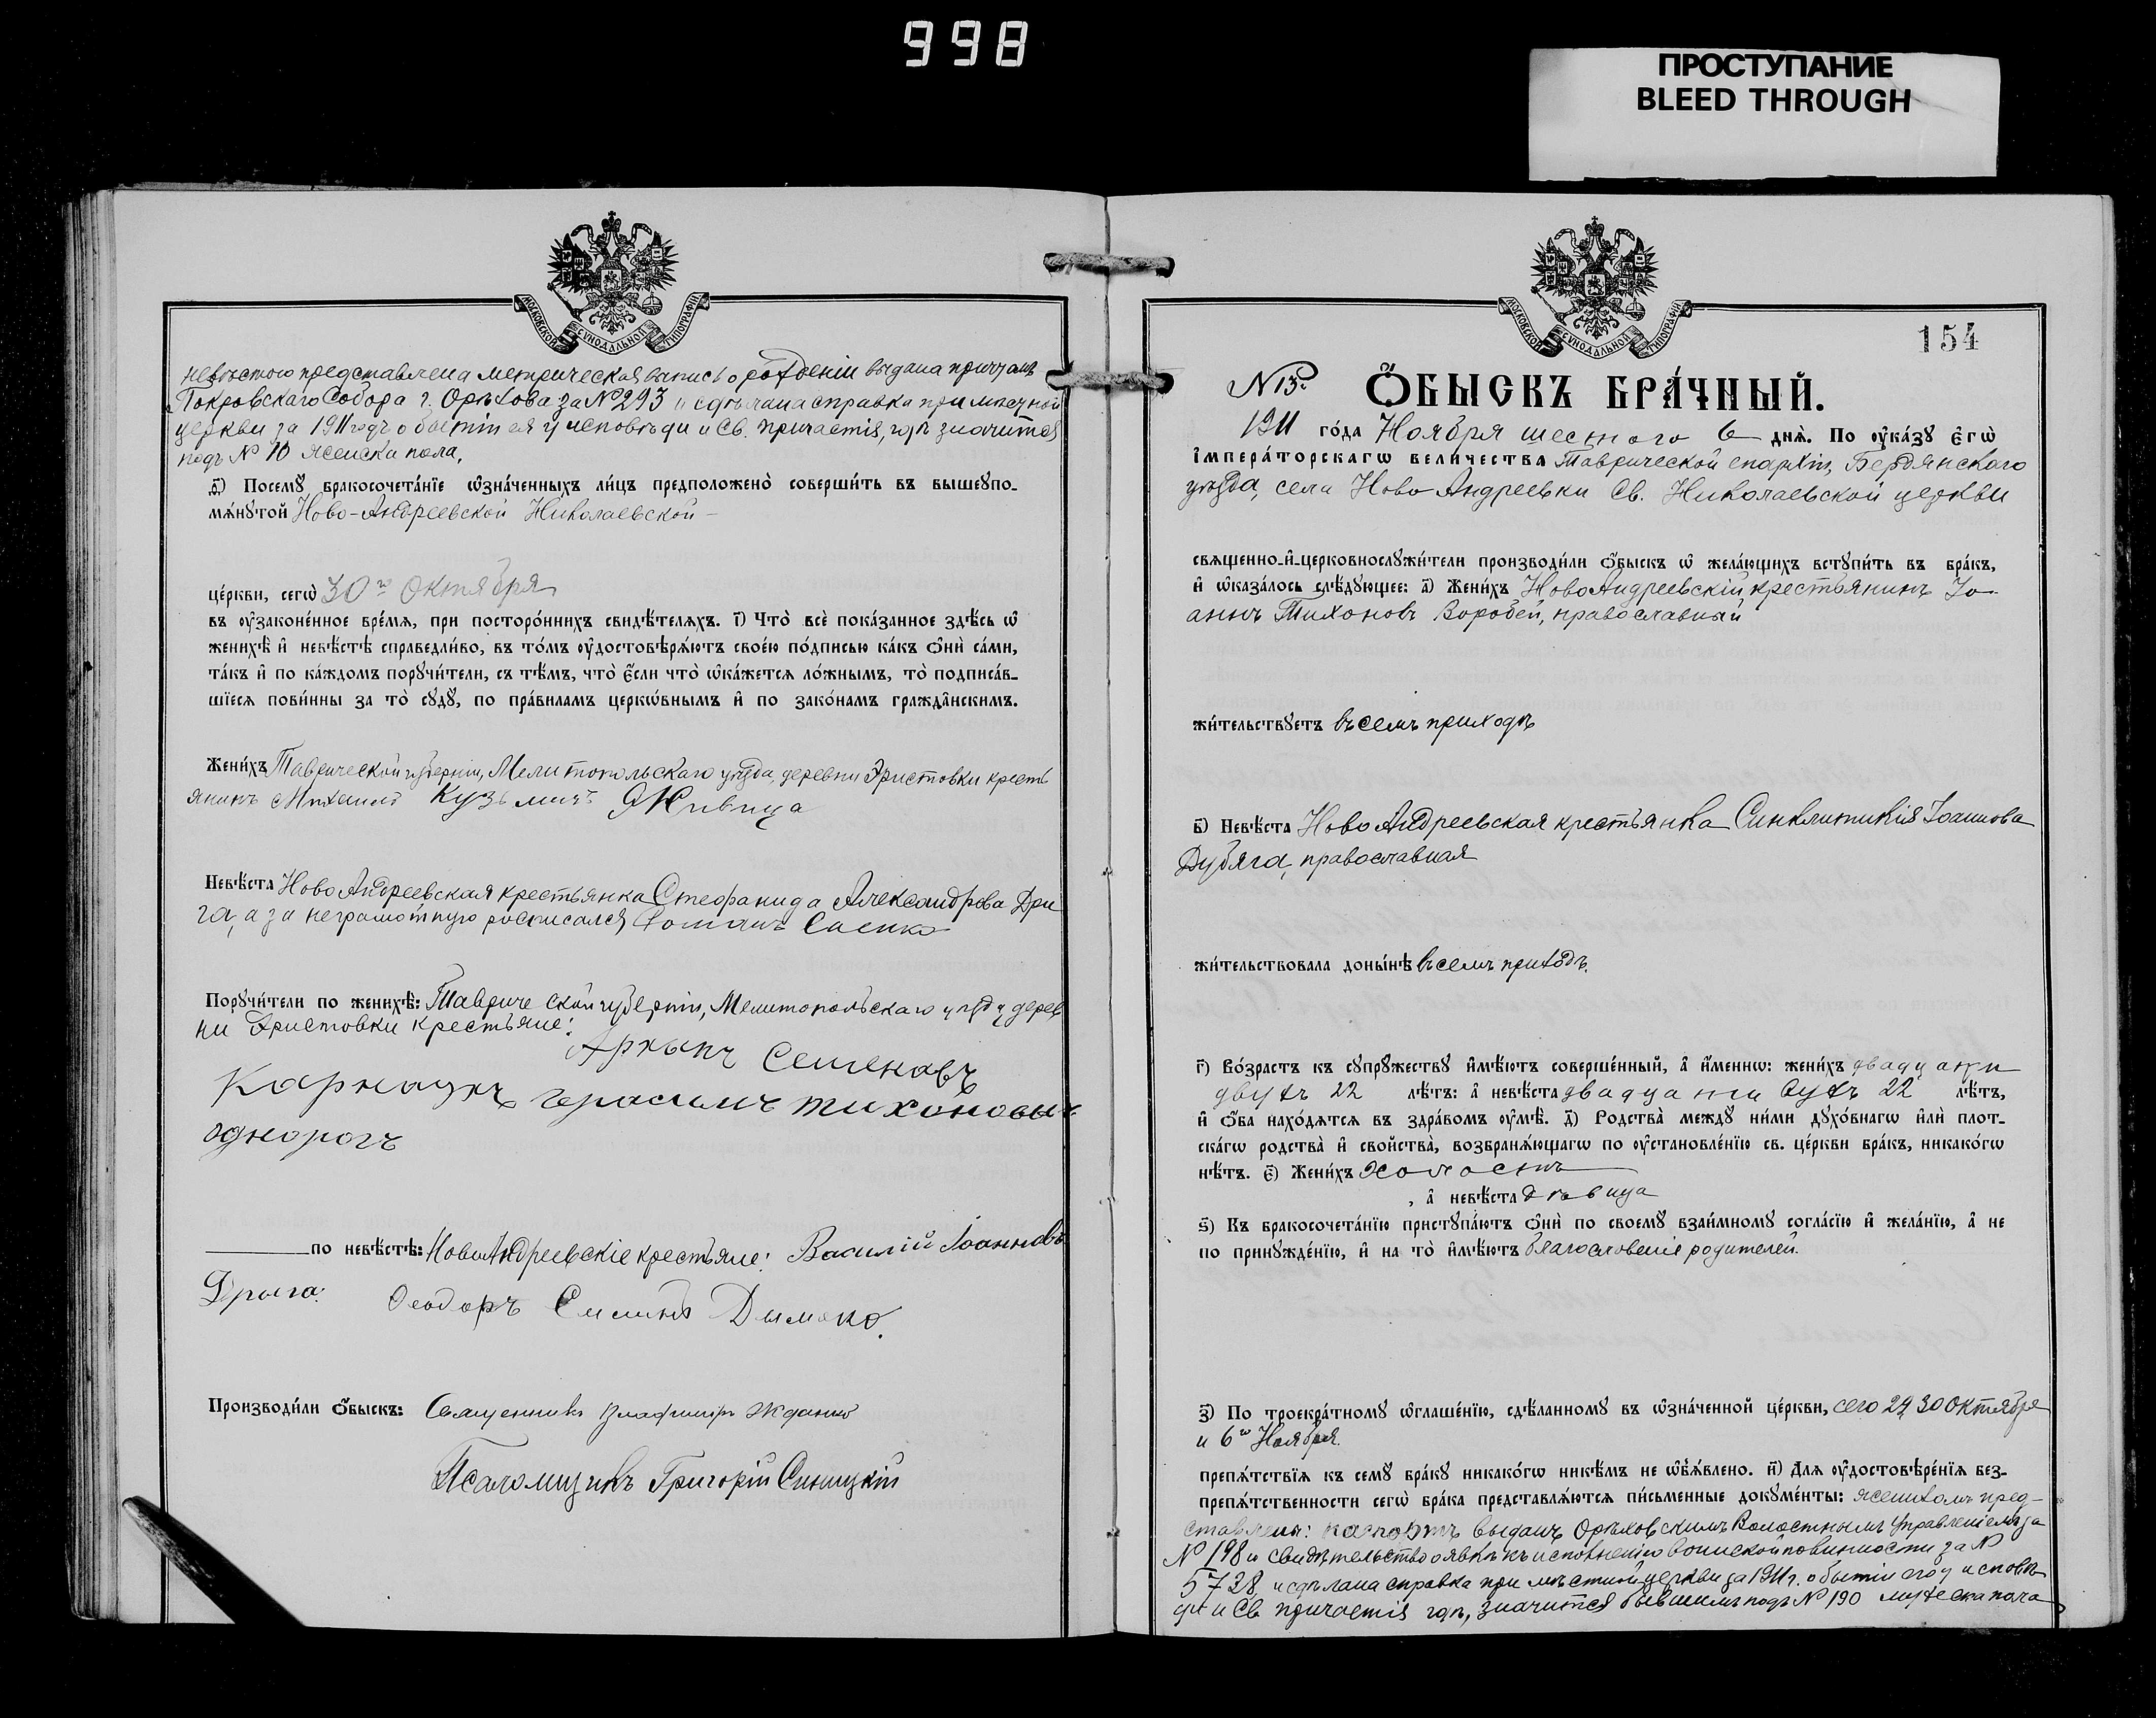 998
ПРОСТУПАНИЕ
BLEED THROUGH
МОСКОВСКОЙ СѴНОДАЛЬНОЙ ТИПОГРАФІИ
невѣстою представлена метрическая выпись о рожденіи выдана причтомъ
Покровскаго Собора г. Орѣхова за № 293 и сдѣлана справка при мѣстной
церкви за 1911 годъ о бытіи ея у исповѣди и Св. Причастія, гдѣ значится
подъ № 10 женска пола,
д҃і) Посемꙋ̀ бракосочета́нїе ѡ҆зна́ченныхъ ли́цъ предположено̀ соверши́ть въ вышеꙋпо-
мѧ́нꙋтой Ново-Андреевской Николаевской -
це́ркви, сегѡ̀ 30го Октября
въ ᲂу҆зако́ненное вре́мѧ, при посторо́ннихъ свидѣ́телѧхъ. і҃) Что̀ всѐ пока́занное здѣ́сь ѡ҆
женихѣ̀ и҆ невѣ́стѣ справедли́во, въ то́мъ ᲂу҆достовѣрѧ́ютъ свое́ю по́дписью ка́къ ѻ҆нѝ са́ми,
та́къ и҆ по ка́ждомъ порꙋчи́тели, съ тѣ́мъ, что̀ є҆́сли что̀ ѡ҆ка́жетсѧ ло́жнымъ, то̀ подписа́в-
шїесѧ пови́нны за то̀ сꙋдꙋ̀, по пра́виламъ церкѡ́внымъ и҆ по зако́намъ гражда̑нскимъ.
Жени́хъ Таврической губерніи, Мелитопольскаго уѣзда, деревни Эристовки кресть
янинъ Михаилъ Кузьминъ Живица
Невѣ́ста Ново Андреевская крестьянка Стефанида Александрова Дры
га, а за неграмотную росписался Романъ Саенко
Порꙋчи́тели по женихѣ̀: Таврической губерніи, Мелитопольскаго уѣзда, дерев
ни Эристовки крестьяне:
Архыпъ Семеновъ
Карнаухъ Герасимъ Тихоновъ
однорогъ
по невѣ́стѣ: Ново Андреевскіе крестьяне: Василій Іоанновъ
Дрыга.
Ѳеодоръ Дымеко.
Производи́ли ѻ҆́быскъ: Священникъ Владиміръ Ждановъ
Псаломщикъ Григорій Синицкій
МОСКОВСКОЙ СѴНОДАЛЬНОЙ ТИПОГРАФІИ
154
№ 13й
Ѻ҆́БЫСКЪ БРА́ЧНЫЙ.
1911 го́да Ноября шестого 6 днѧ̀. По ᲂу҆ка́зꙋ Є҆гѡ̀
І҆мпера́торскагѡ вели́чества Таврической епархіи, Бердянскаго
уѣзда, села Ново Андреевки Св. Николаевской церкви
свѧще́нно-и҆-церковнослꙋжи́тели производи́ли ѻ҆́быскъ ѡ҆ жела́ющихъ встꙋпи́ть въ бра́къ,
и҆ ѡ҆каза́лось слѣ́дꙋющее: а҃) Жени́хъ Ново Андреевскій крестьянинъ Іо-
аннъ Тихоновъ Воробей, православный
жи́тельствꙋетъ въ семъ приходѣ
в҃) Невѣ́ста Ново Андреевская крестьянка Синклитикія Іоаннова
Дубяга, православная
жи́тельствовала доны́нѣ въ семъ приходѣ.
г҃) Во́зрастъ къ сꙋпрꙋ́жествꙋ и҆мѣ́ютъ соверше́нный, а҆ и҆́меннѡ: жени́хъ двадцати
двухъ 22 лѣ́тъ: а҆ невѣ́ста двадцати двухъ 22 лѣ́тъ,
и҆ ѻ҆́ба нахо́дѧтсѧ въ здра́вомъ ᲂу҆мѣ̀. д҃) Родства̀ междꙋ̀ ни́ми дꙋхо́внагѡ и҆лѝ плот-
ска́гѡ родства̀ и҆ свойства̀, возбранѧ́ющагѡ по ᲂу҆становле́нїю св. це́ркви бра́къ, никако́гѡ
нѣ́тъ. є҃) Жени́хъ холостъ
, а҆ невѣ́ста дѣвица
ѕ҃) Къ бракосочета́нїю пристꙋпа́ютъ ѻ҆нѝ по своемꙋ̀ взаи́мномꙋ согла́сїю и҆ жела́нїю, а҆ не
по принꙋжде́нїю, и҆ на то̀ и҆мѣ́ютъ благословенія родителей.
з҃) По троекра́тномꙋ ѡ҆глаше́нїю, сдѣ́ланномꙋ въ ѡ҆зна́ченной це́ркви, сего 24, 30 Октября
и 6го Ноября.
препѧ́тствїѧ къ семꙋ̀ бра́кꙋ никако́гѡ никѣ́мъ не ѡ҆б̾ѧ́влено. и҃) Длѧ ᲂу҆достовѣре́нїѧ без-
препѧ́тственности сегѡ̀ бра́ка представлѧ́ютсѧ пи́сьменные докꙋме́нты: женихомъ пред-
ставлены: паспортъ выданъ Орѣховскимъ Волостнымъ Управленіемъ за
№ 198 и свидѣтельство о явкѣ къ исполненію воинской повинности за №
5728, и сдѣлана справка при мѣстной церкви за 1911 г. о бытіи его у исповѣ-
ди и Св. Причастія гдѣ, значится бывшимъ подъ № 190 мужеска пола